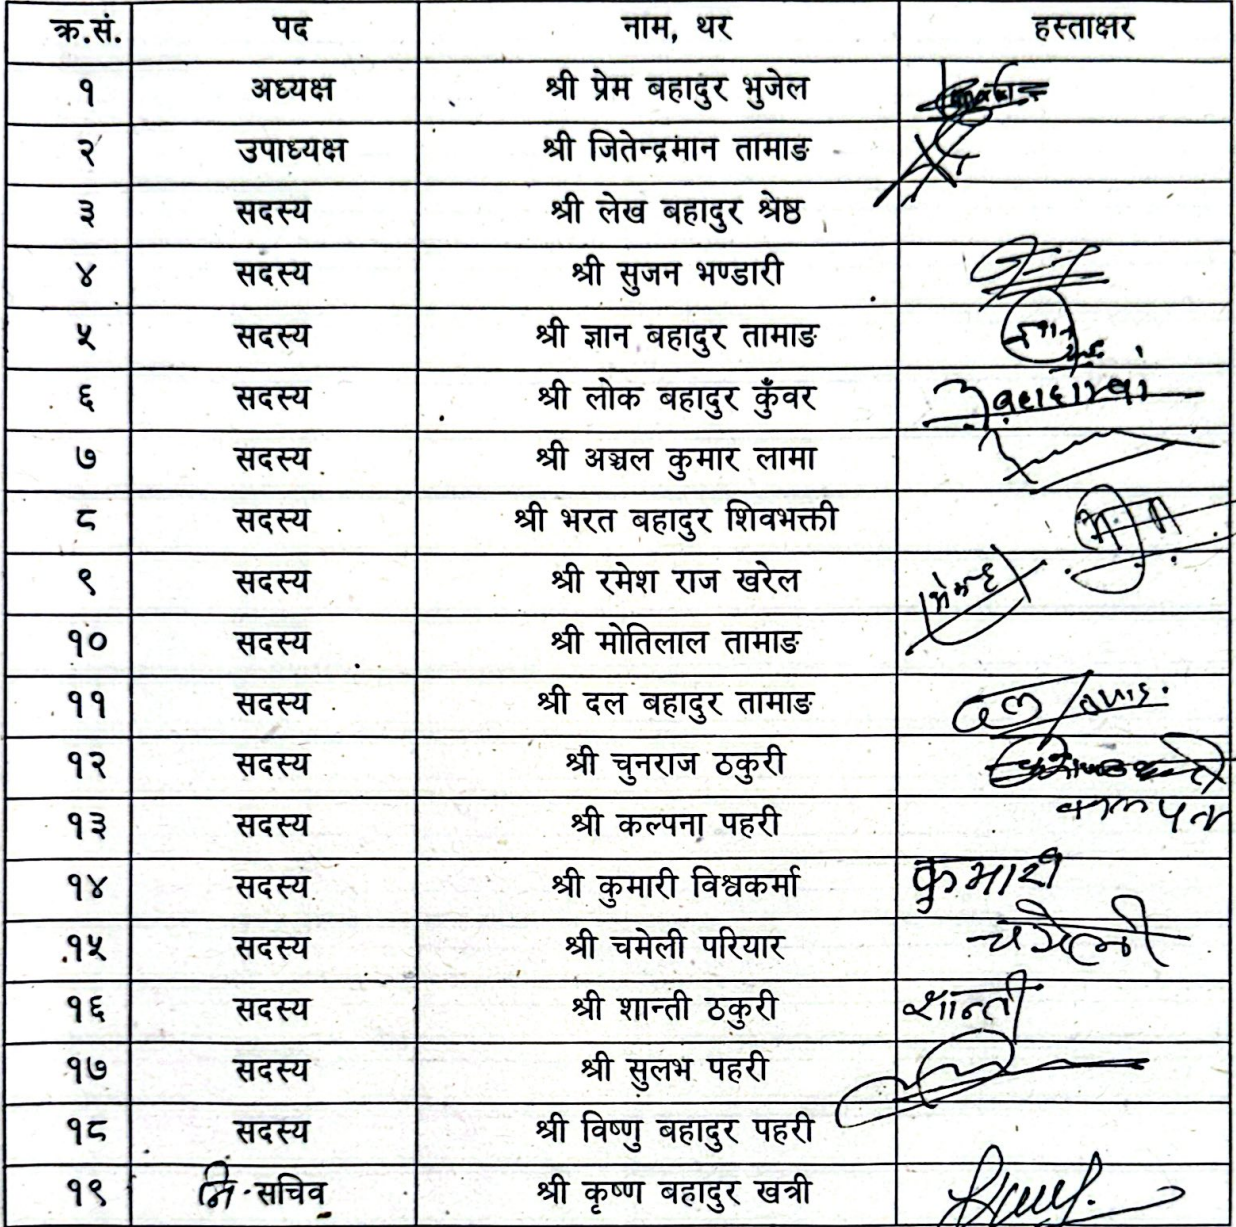 क्र.सं. पद नाम, थर हस्ताक्षर
१ अध्यक्ष श्री प्रेम बहादुर भुजेल
२ उपाध्यक्ष श्री जितेन्द्रमान तामाङ
३ सदस्य श्री लेख बहादुर श्रेष्ठ
४ सदस्य श्री सुजन भण्डारी
५ सदस्य श्री ज्ञान बहादुर तामाङ
६ सदस्य श्री लोक बहादुर कुँवर
७ सदस्य श्री अञ्चल कुमार लामा
८ सदस्य श्री भरत बहादुर शिवभक्ती
९ सदस्य श्री रमेश राज खरेल
१० सदस्य श्री मोतिलाल तामाङ
११ सदस्य श्री दल बहादुर तामाङ दल तामाङ
१२ सदस्य श्री चुनराज ठकुरी
१३ सदस्य श्री कल्पना पहरी कल्पना
१४ सदस्य श्री कुमारी विश्वकर्मा कुमारी
१५ सदस्य श्री चमेली परियार चमेली
१६ सदस्य श्री शान्ती ठकुरी शान्ती
१७ सदस्य श्री सुलभ पहरी
१८ सदस्य श्री विष्णु बहादुर पहरी
१९ नि. सचिव श्री कृष्ण बहादुर खत्री